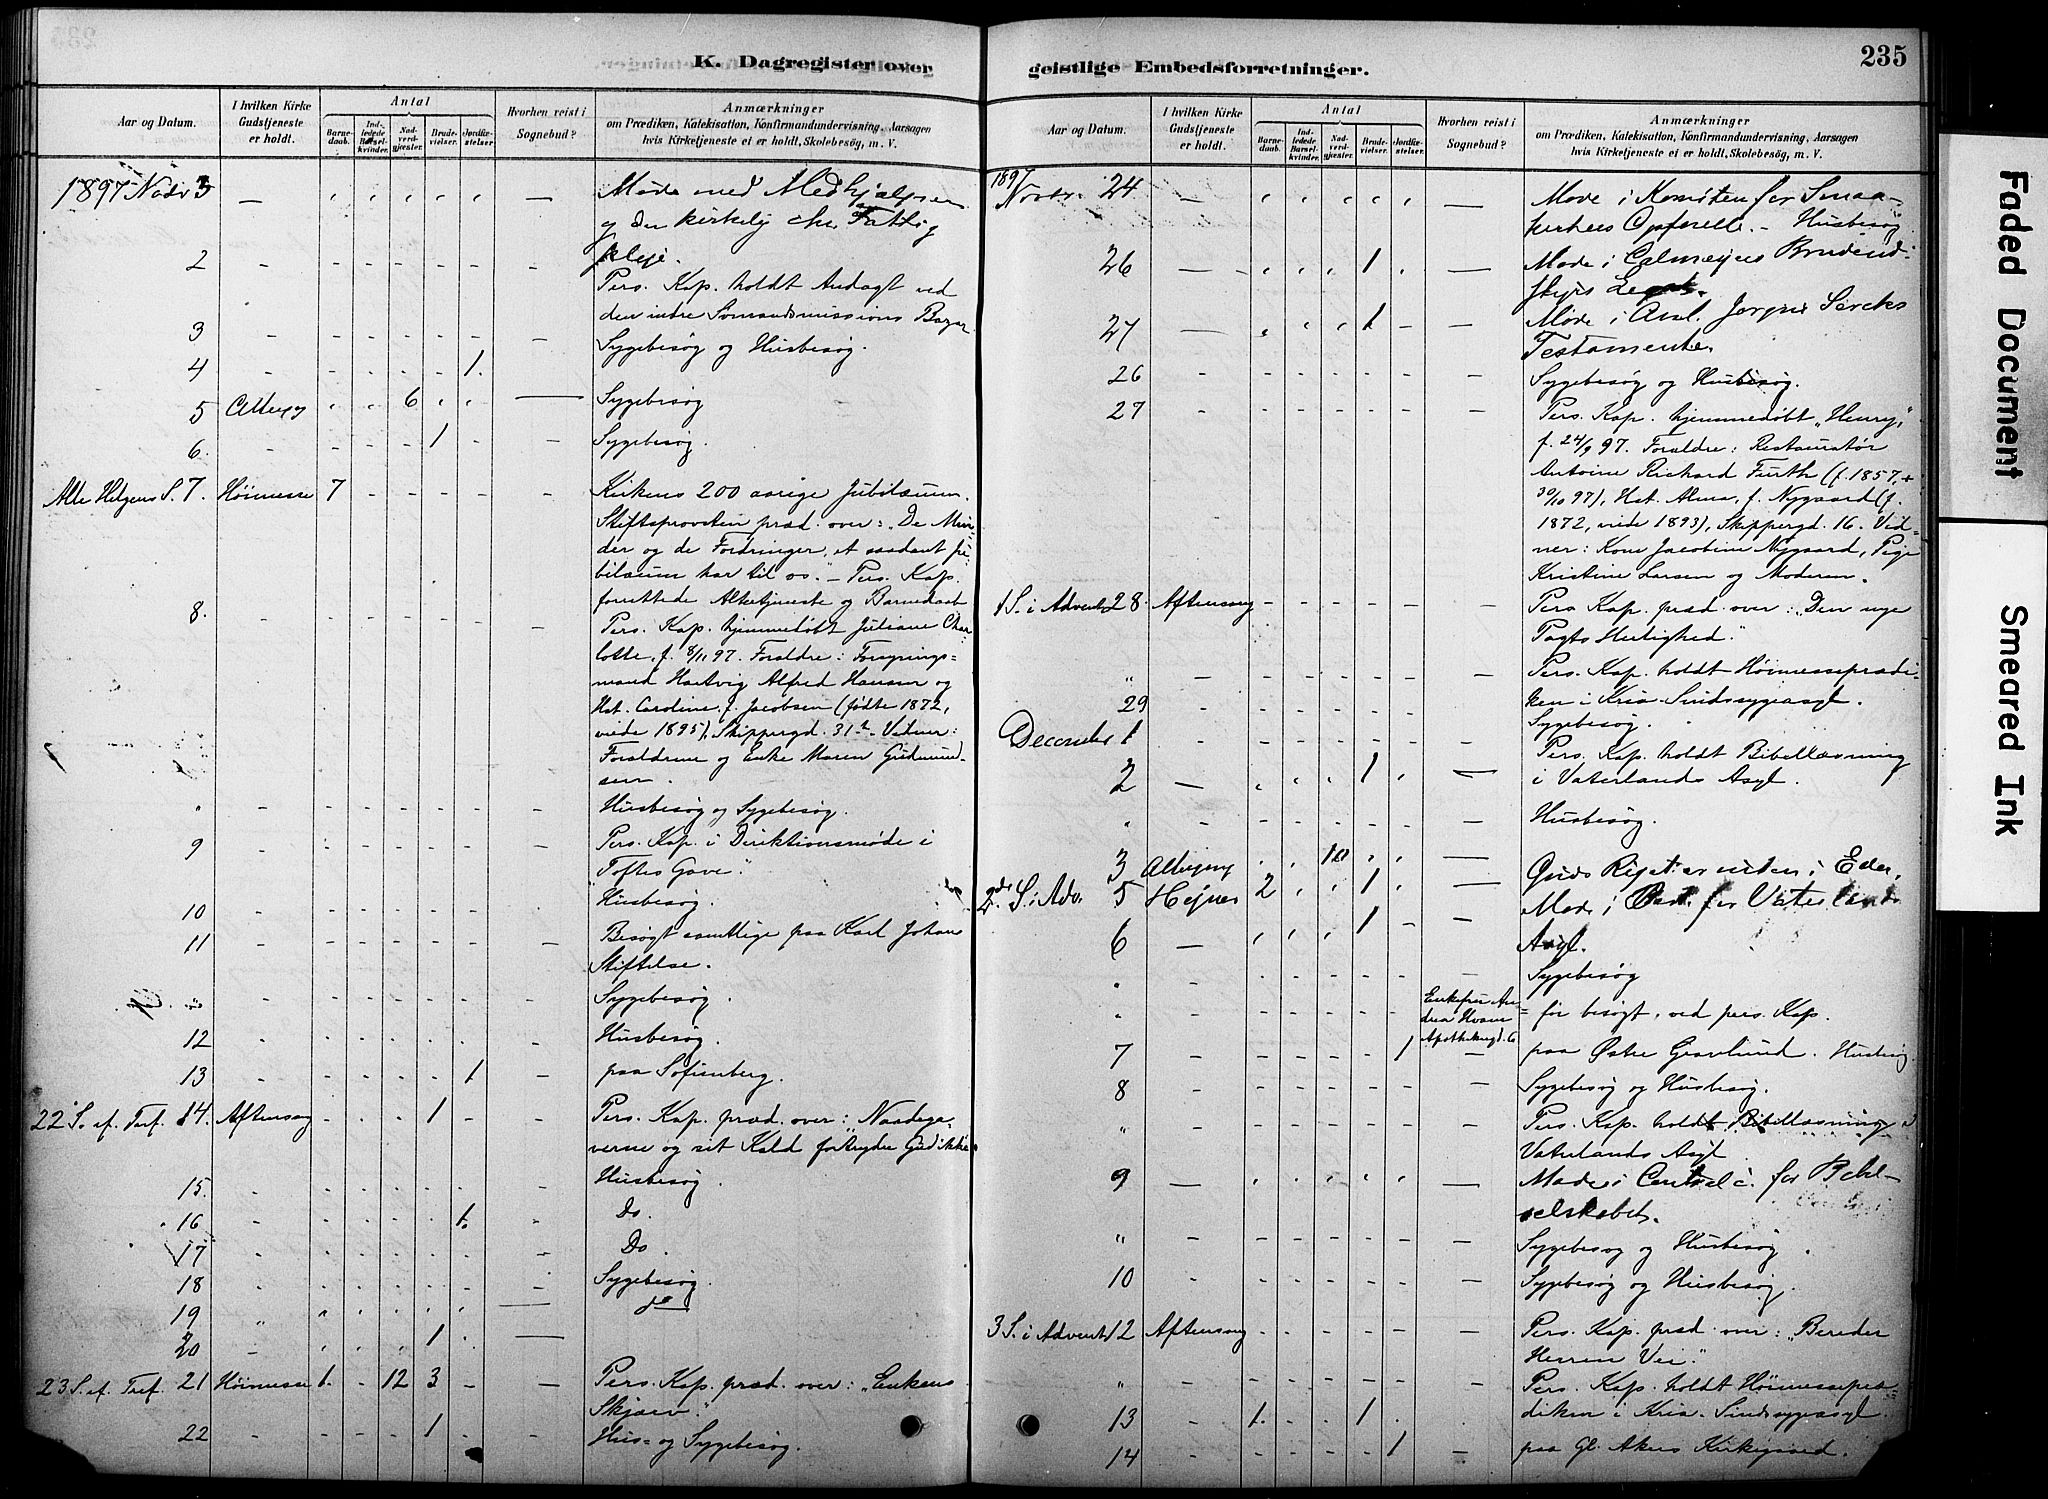 235
K. Dagregister over
geistlige Embedsforretninger.
Aar og Datum.
I hvilken Kirke Gudstjeneste er holdt.
Antal
Barnedaab.
Indledede Barselkvinder.
Nadverdgjæster.
Brudevielser.
Jordfæstelser.
Hvorhen reist i Sognebud?
Anmærkninger
om Prædiken, Katekisation, Konfirmandundervisning, Aarsagen
hvis Kirketjeneste ei er holdt, Skolebesøg, m. V.
1897 Novbr 3 — Møde med Medhjælperne
og den kirkelig Fattig
pleje.
2 Pers. Kap. holdt Andagt ved
den indre Sømandsmissions Bazar
3 Sygebesøg og Husbesøg.
4 1.
5 Altergg 6 — Sygebesøg
6. 1 Sygebesøg.
Alle Helgens S. 7. Høimesse 7 Kirkens 200 aarige Jubilæum.
Stiftsprovsten præd. over: „De Min-
der og de Fordringer, et saadant ju-
bilæum har til os." – Pers. Kap.
forrettede Altertjeneste og Barnedaab
8. Pers. Kap. hjemmedøbt Juliane Char
lotte, f. 8/11 97. Forældre: Forgyrings=
mand Hartvig Alfred Hansen og
Hst. Cardine, f. Jacobsen (fødte 1872,
viede 1895), Skippergd. 31 Vidner:
Forældrene og Enke Maren Gudmund-
sen.
" Husbesøg og Sygebesøg.
9 Pers. Kap. i Direktionsmøde i
„Toftes Gave".
Husbesøg.
10
11 Besøgt samtlige paa Karl Johans
Stiftelse.
Sygebesøg.
12 Husbesøg.
13 1 paa Sofienberg.
22 S. ef. Tref. 14. Aftensang 1 Pers. Kap. præd. over: „Naadega-
verne og sit Kald fortryder Gud ikke"
15. Husbesøg.
16 1. Do.
17 Do.
18 Sygebesøg.
19 — do
20 1 —
23 S. ef. Tref. 21 Høimesse 1. 12 3 — Pers. Kap. præd. over: „Enkens
Skjærv."
22 1 Hus= og Sygebesøg.
Aar og Datum.
I hvilken Kirke Gudstjeneste er holdt.
Antal
Barnedaab.
Indledede Barselkvinder.
Nadverdgjæster.
Brudevielser.
Jordfæstelser.
Hvorhen reist i Sognebud?
Anmærkninger
om Prædiken, Katekisation, Konfirmandundervisning, Aarsagen
hvis Kirketjeneste ei er holdt, Skolebesøg, m. V.
1897
Novbr. 24 — Møde i Komiteen for Smaa-
kirkers Opførelse. – Husbesøg
26 — 1 — Møde i Calmeyers Brudeud-
styrs Legat.
27 — 1 — Møde i Jørgine Sercks
Testamente.
26 Sygebesøg og Husbesøg.
27 Pers. Kap. hjemmedøbt „Henry",
f. 24/9 97. Forældre: Restauratør
Antoine Richard Furth (f. 1857, +
30/10 97), Hst. Alma, f. Nygaard (f.
1872, viede 1893), Skippergd. 16. Vid-
ner: Kone Jacobine Nygaard, Pige
Kristine Larsen og Moderen.
1 S. i Advent 28. Aftensang Pers. Kap. præd. over: „Den nye
Pagts Herlighed."
" Pers. Kap. holdt Høimessepræ-di-
ken i Kria. Sindssygeasyl.
29 Sygebesøg.
December 1 Pers. Kap. holdt Bibellæsning
i Vaterlands Asyl.
2 — 1 —
" Husbesøg.
3 Altergang 10 —
2den S. i Adv. 5 Højmes 2 1 — Guds Riget er inden i Eder.
6 — 1 — Møde i Best. for Vaterlands
Asyl.
" Sygebesøg
" Enkefru An-
drea Hvam
Apothekergd. 6 før besøgt, ved pers. Kap.
7 1 paa Østre Gravlund. Husbesøg.
8 Sygebesøg og Husbesøg.
" Pers. Kap. holdt Bibellæsning i
Vaterlands Asyl
9 — Møde i Central c. for Bibel-
selskabet.
" Sygebesøg og Husbesøg.
10 Sygebesøg og Husbesøg.
3 S. i Advent 12 Aftensang Pers. Kap. præd. over: „Bereder
Herren Vei."
" Pers. Kap. holdt Høimessepræ=
diken i Kria. Sindssygeasyl.
13 1. 1
14 1 paa Gl. Akers Kirkegaard.
Faded Document
Smeared Ink